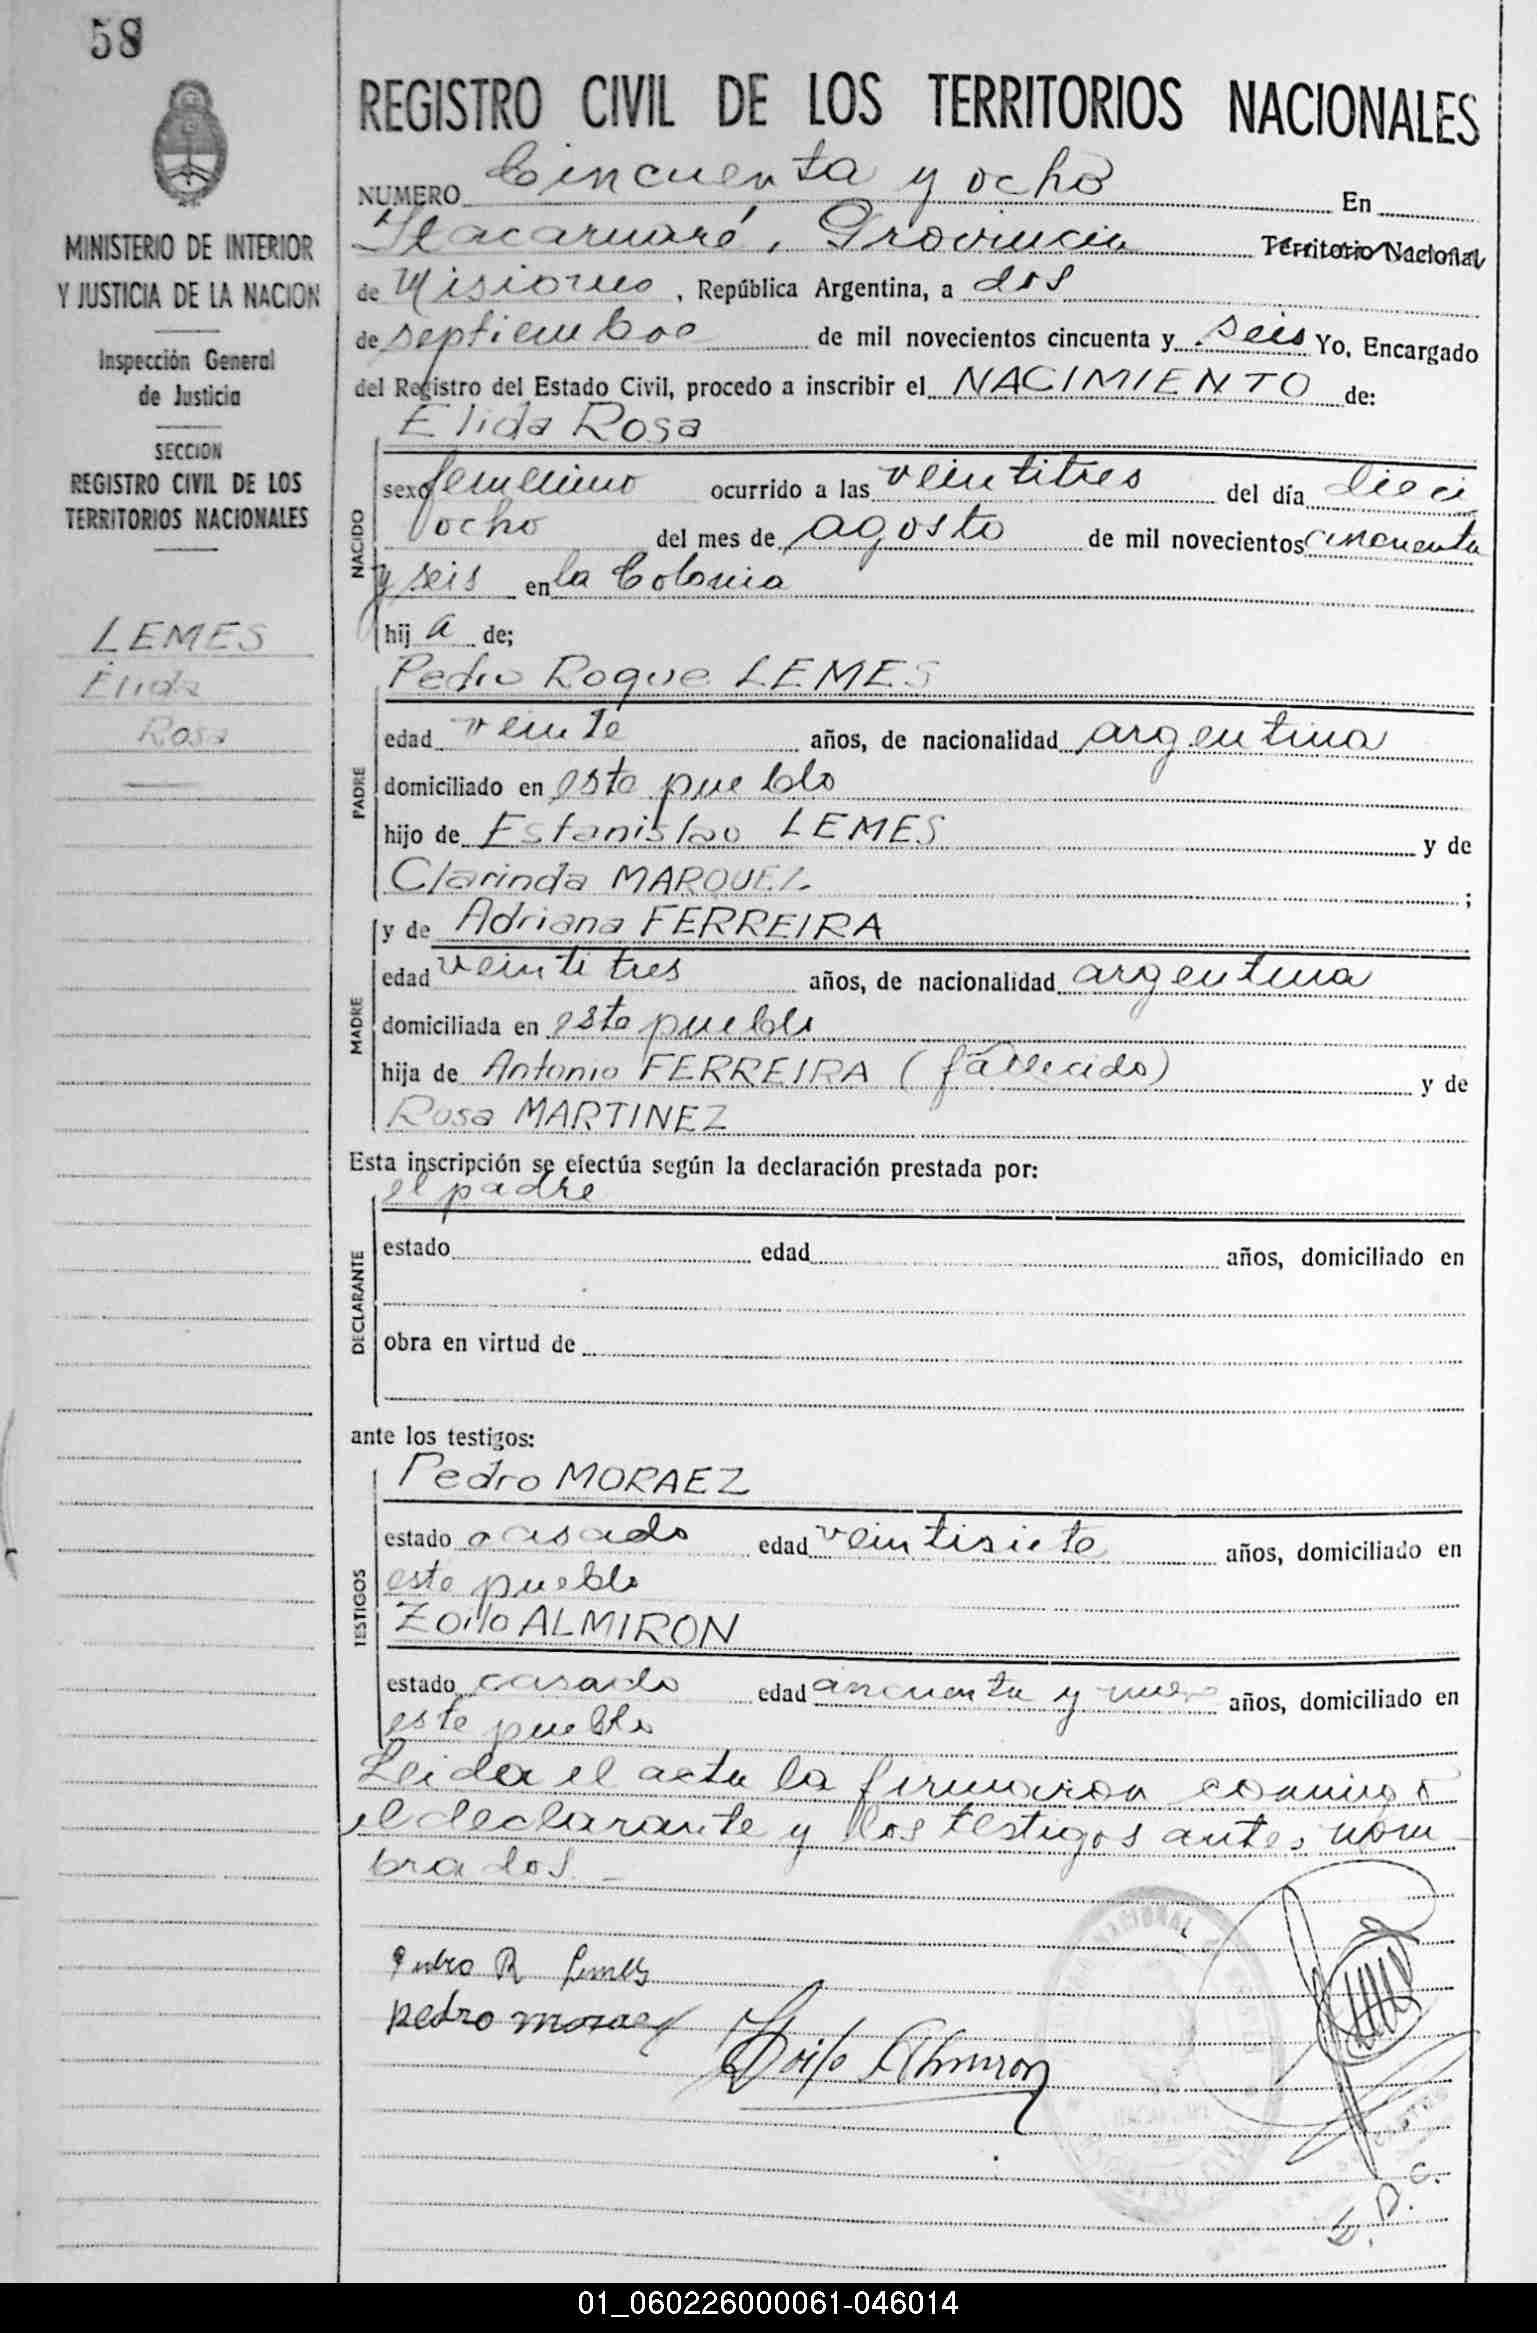 58
MINISTERIO DE INTERIOR
Y JUSTICIA DE LA NACION
Inspección General
de Justicia
SECCION
REGISTRO CIVIL DE LOS
TERRITORIOS NACIONALES
LEMES
Elida
Rosa
REGISTRO CIVIL DE LOS TERRITORIOS NACIONALES
NUMERO Cincuenta y ocho En
Itacaruaré, Provincia Territorio Nacional
de Misiones, República Argentina, a dos
de septiembre de mil novecientos cincuenta y seis Yo, Encargado
del Registro del Estado Civil, procedo a inscribir el NACIMIENTO de:
Elida Rosa
NACIDO
sexo femenino ocurrido a las veintitres del día dieci
ocho del mes de agosto de mil novecientos cincuenta
y seis en la Colonia
hij a de;
Pedro Roque LEMES
PADRE
edad veinte años, de nacionalidad argentina
domiciliado en este pueblo
hijo de Estanislao LEMES y de
Clarinda MARQUEZ ;
y de Adriana FERREIRA
MADRE
edad veintitres años, de nacionalidad argentina
domiciliada en este pueblo
hija de Antonio FERREIRA (fallecido) y de
Rosa MARTINEZ
Esta inscripción se efectúa según la declaración prestada por:
el padre
DECLARANTE
estado edad años, domiciliado en
obra en virtud de
ante los testigos:
Pedro MORAEZ
TESTIGOS
estado casado edad veintisiete años, domiciliado en
este pueblo
Zoilo ALMIRON
estado casado edad cincuenta y nueve años, domiciliado en
este pueblo
Leida el acta la firmaron conmigo
el declarante y los testigos antes nom
brados.—
Pedro R Lemes
pedro moraez
Zoilo Almiron
01_060226000061-046014